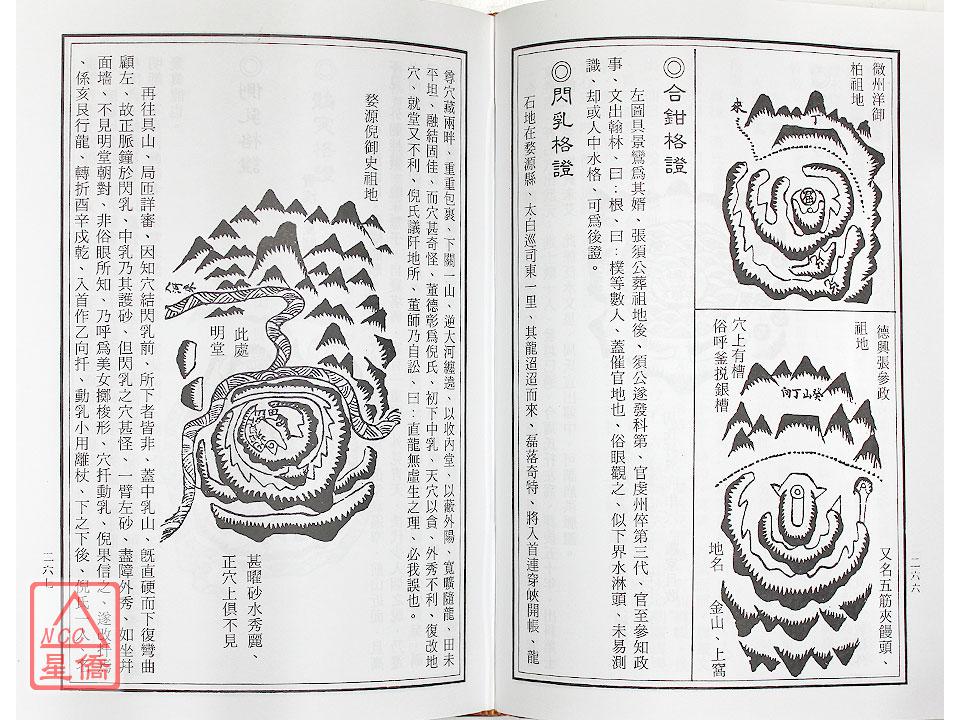 徵州洋御
柏祖地
來
丁
德興張參政
祖地
癸山丁向
穴上有槽
俗呼釜脱銀槽
又名五筋夾饅頭、
地名
金山、上窩
二六六
◎合鉗格證
左圖具景鸞爲其婿、張須公葬祖地後、須公遂發科第、官虔州倅第三代、官至參知政
事、文出翰林、曰:根、曰:樸等數人、蓋催官地也、俗眼觀之、似下界水淋頭、未易測
識、却或人中水格、可爲後證。
◎閃乳格證
石地在婺源縣、太白巡司東一里、其龍迢迢而來、磊落奇特、將入首連穿峽開帳、龍
尊穴藏兩畔、重重包裹、下關一山、逆大河纏邊、以收內堂、以蔽外陽、寬曠隨龍、田未
平坦、融結固佳、而穴甚奇怪、董德彰爲倪氏、初下中乳、天穴以貪、外秀不利、復改地
穴、就堂又不利、倪氏議阡地所、董師乃自訟、曰:直龍無虛生之理、必我誤也。
婺源倪御史祖地
來河
此處
明堂
甚曜砂水秀麗、
正穴上俱不見
再往具山、局匝詳審、因知穴結閃乳前、所下者皆非、蓋中乳山、旣直硬而下復彎曲
顧左、故正脈鐘於閃乳、中乳乃其護砂、但閃乳之穴甚怪、一臂左砂、盡障外秀、如坐井
面墙、不見明堂朝對、非俗眼所知、乃呼爲美女擲梭形、穴扦動乳、倪果信之、遂改扦
、係亥艮行龍、轉折酉辛戍乾、入首作乙向扦、動乳小用離杖、下之下後、倪氏一
二六七
NCC
星僑